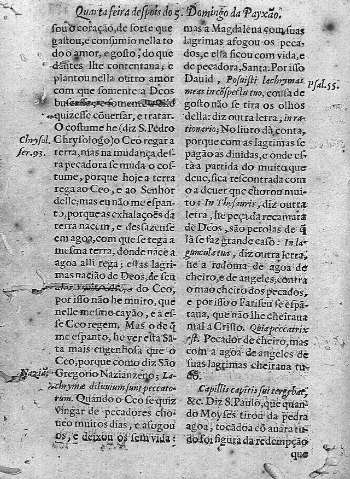 Quarta feira despois do 5. Domingo da Payxão.
sou o coração, de sorte que
gastou, & consumio nella to
do o amor, & gosto, do que
dantes lhe contentaua, &
plantou nella outro amor
com que somente a Deos
buscasse, & somente
quizesse cõuersar, & tratar.
O costume he (diz S. Pedro
Chrysologo) o Ceo regar a
terra, mas na mudança des-
ta peccadora se muda o cos-
tume, porque hoje a terra
rega ao Ceo, & ao Senhor
delle: mas eu não me espan-
to, porque as exhalações da
terra nacem, & desfazense
em agoa, com que se rega a
mesma terra, donde nace a
agoa alli rega; estas lagri-
mas nacião de Deos, de seu
do Ceo,
por isso não he muito, que
nelle mesmo cayão, & a es-
se Ceo regem. Mas o de q̃
me espanto, he ver esta Sã-
ta mais engenhosa que o
Ceo, porque como diz São
Gregorio Nazianzeno: La-
chrymæ diluuium sunt peccato-
rum. Quando o Ceo se quiz
vingar de peccadores cho-
ueo muitos dias, & afogou
os, & deixou os sem vida:
Chrysol.
ser. 93.
Naziã.
mas a Magdalena com suas
lagrimas afogou os pecca-
dos, & ella ficou com vida, &
de peccadora, Santa. Por isso
Dauid, Posuisti lachrymas
meas in cõspectu tuo, cousa de
gosto não se tira os olhos
della: diz outra letra, in ra-
tionario; No liuro da conta,
porque com as lagrimas se
pagão as diuidas, & onde es-
taa partida do muito que
deue, fica rescontrada com
o a deuer que chorou mui-
to. In Thesauris, diz outra
letra, lhe peçada recamara
de Deos, são perolas de q̃
là se faz grande caso: In la-
guncutus, diz outra letra,
he a redoma de agoa de
cheiro, & de angeles; contra
o mao cheiro dos peccados,
& por isso o Fariseu se espã-
taua, que não lhe cheiraua
mal a Cristo. Quia peccatrix
est. Peccador de cheiro, mas
com a agoa de angeles de
suas lagrimas cheiraua tu-
do.
Capillis capitis sui tergebat,
&c. Diz S. Paulo, que quan-
do Moyses tirou da pedra
agoa, tocadoa cõ a uara tu-
do foi figura da redempção
que
Psal. 55.